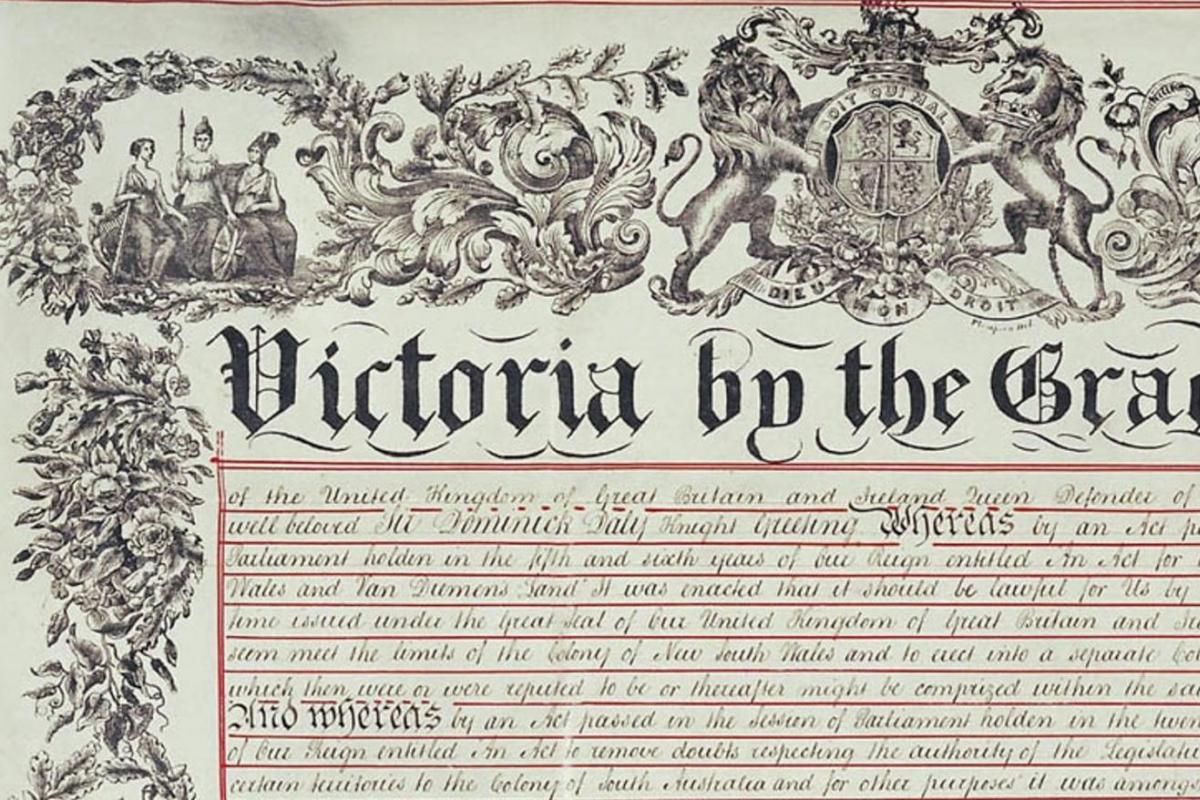 SOIT QUI MAL
DIEU MON DROIT
Victoria by the Grac
of the United Kingdom of Great Britain and Ireland Queen Defender of
well beloved Sir Dominick Daly Knight Greeting Whereas by an Act p
Parliament holden in the fifth and sixth years of Our Reign entitled An Act for
Wales and Van Diemens Land" It was enacted that it should be lawful for Us by
time issued under the Great Seal of Our United Kingdom of Great Britain and
seem meet the limits of the Colony of New South Wales and to erect into a separate Col
which then were or were reputed to be or thereafter might be comprized within the sa
And whereas by an Act passed in the Session of Parliament holden in the twen
of Our Reign entitled An Act to remove doubts respecting the authority of the Legislatu
certain territories to the Colony of South Australia and for other purposes" it was among